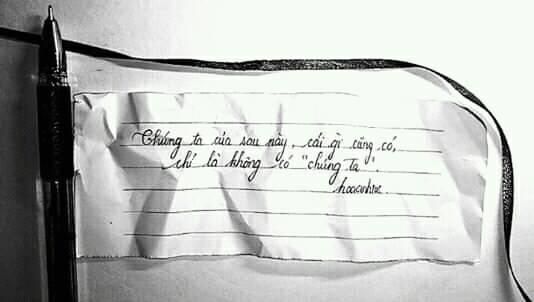 Chúng ta của sau này, cái gì cũng có,
chỉ là không có "chúng ta".